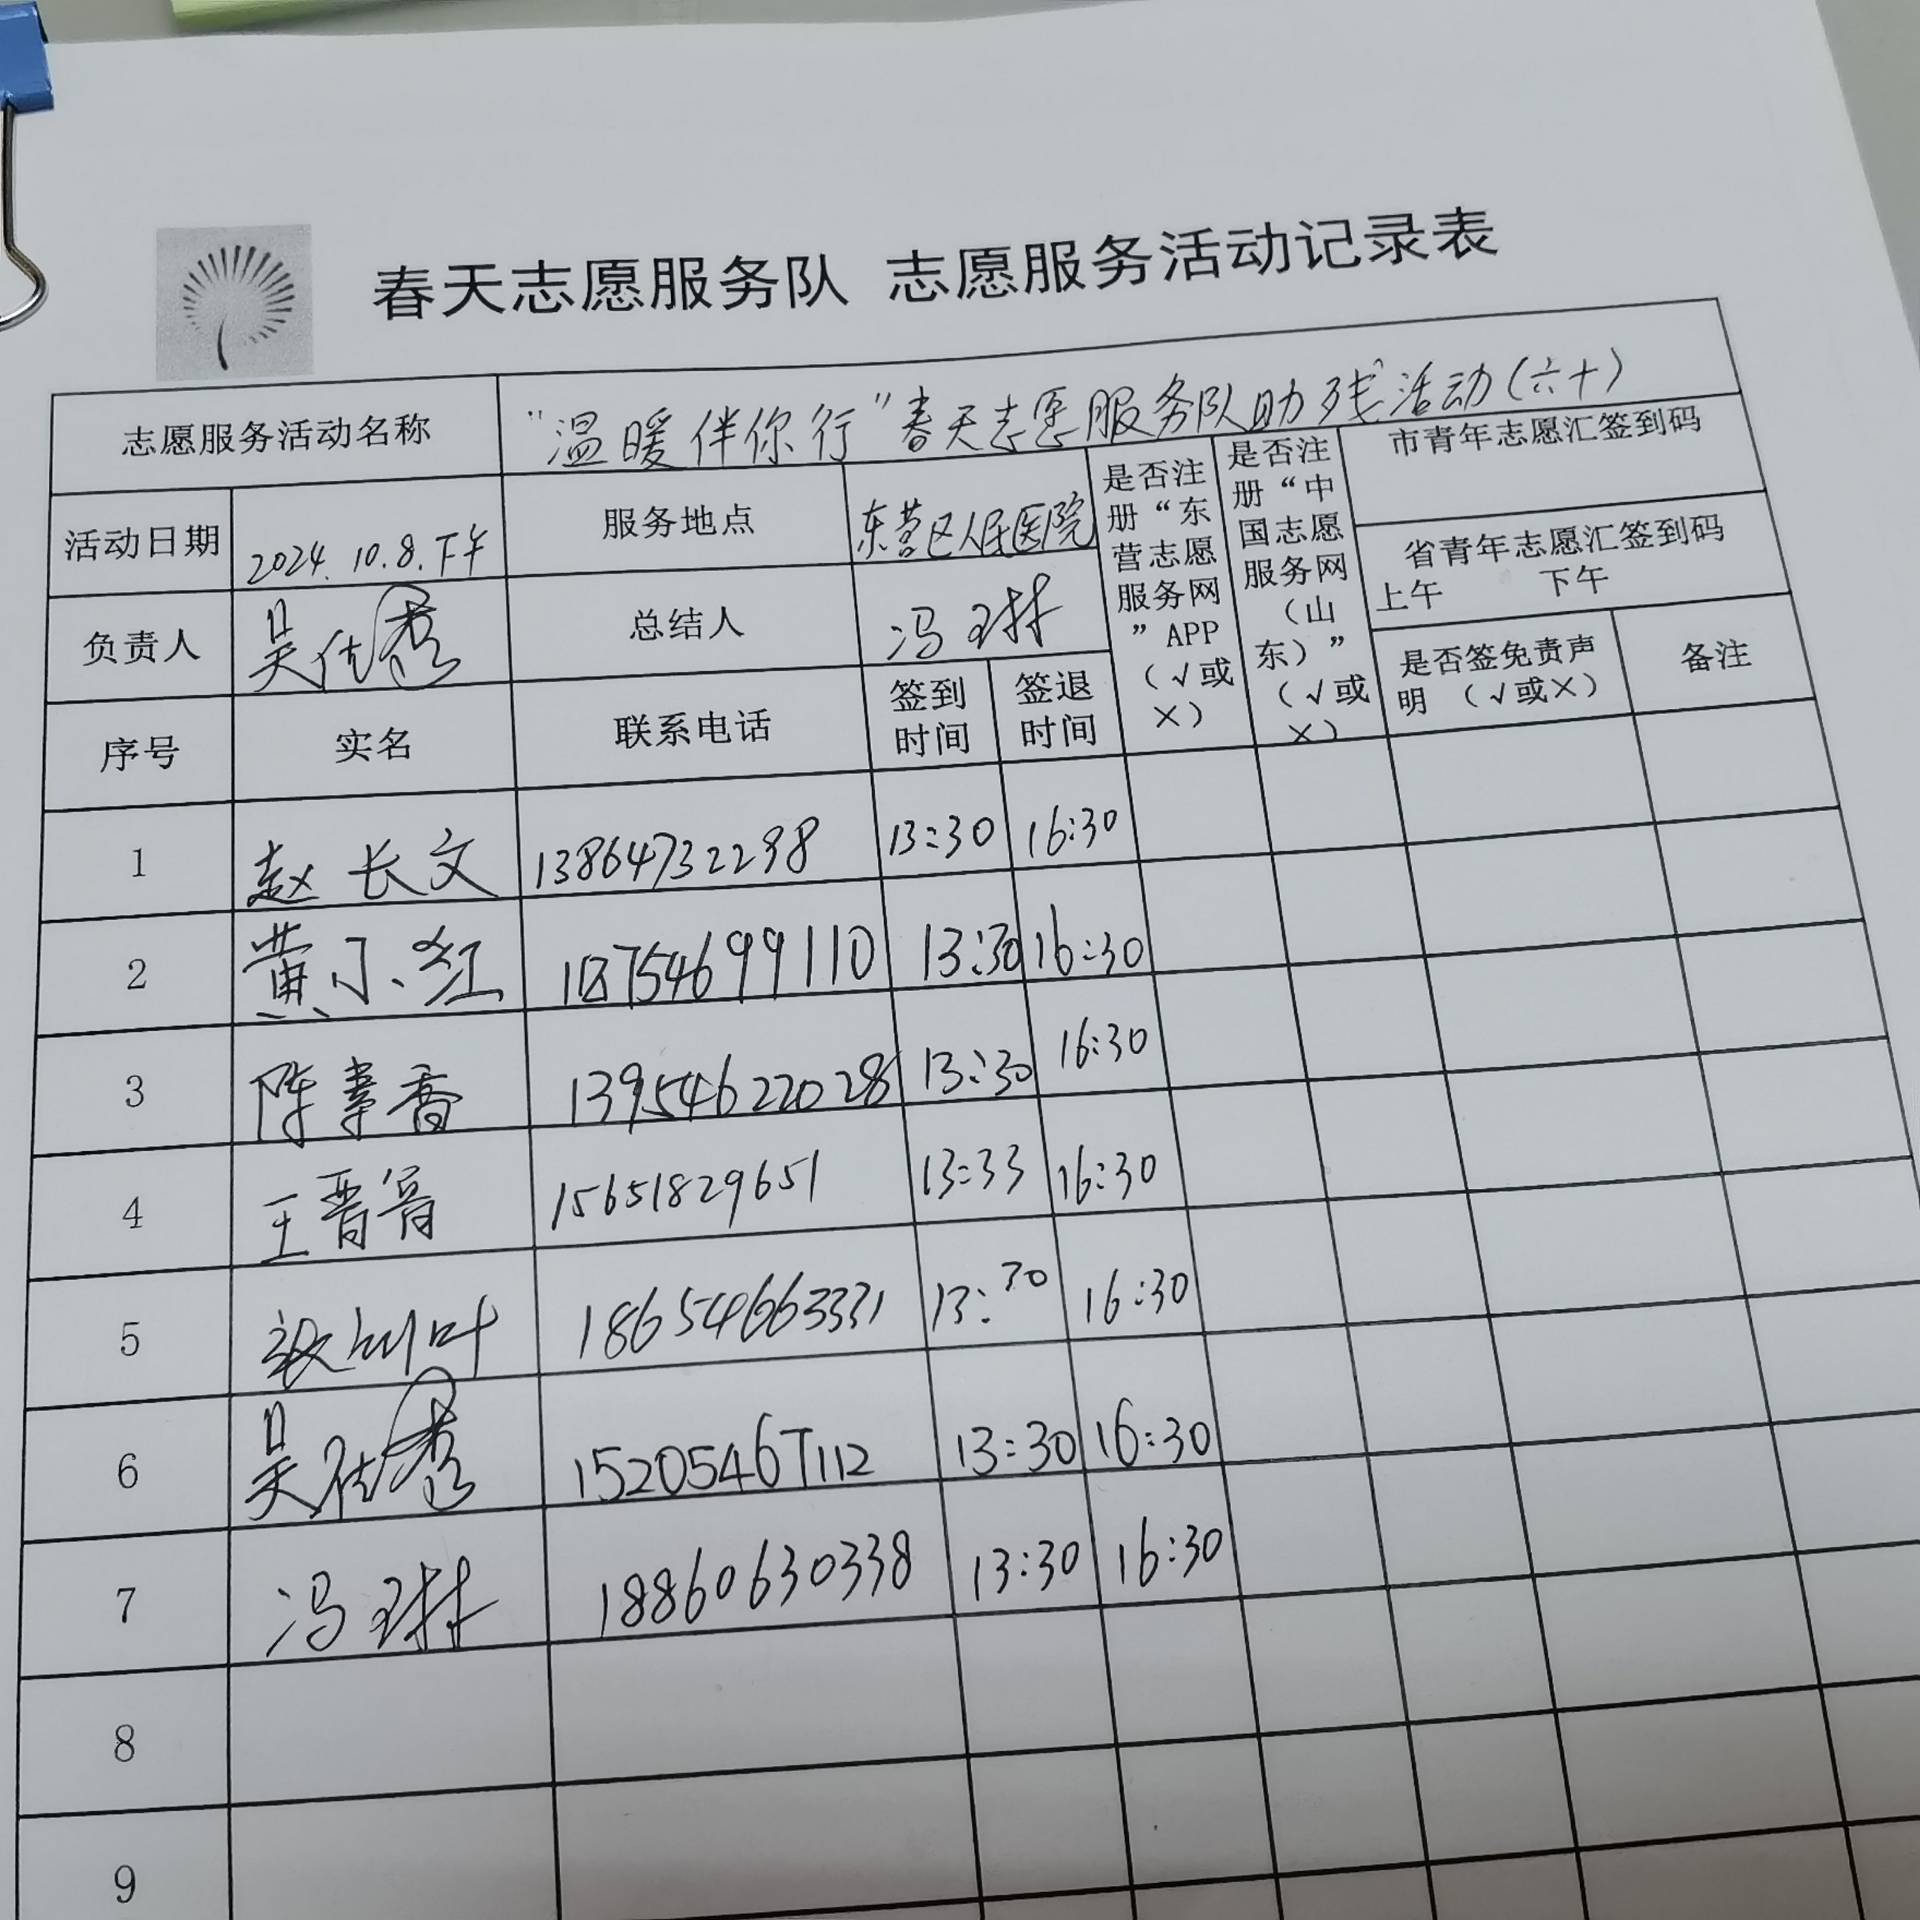 春天志愿服务队 志愿服务活动记录表
志愿服务活动名称 “温暖伴你行”春天志愿服务队助残活动(六十)
活动日期 2024.10.8.下午 服务地点 东营区人民医院
是否注册“东营志愿服务网”APP（√或×）
是否注册“中国志愿服务网（山东）”（√或×）
市青年志愿汇签到码
省青年志愿汇签到码
上午 下午
负责人 吴佐秀 总结人 冯琳
是否签免责声明 （√或×） 备注
序号 实名 联系电话 签到时间 签退时间
1 赵长文 13864732298 13:30 16:30
2 黄小红 18754699110 13:30 16:30
3 陈 香 13954622028 13:30 16:30
4 王晋 15651829651 13:33 16:30
5 叶 18654663331 13:30 16:30
6 吴佐秀 15205467112 13:30 16:30
7 冯琳 18860630338 13:30 16:30
8
9